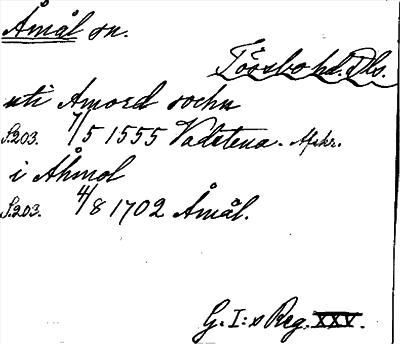 Åmål sn.
Tössbo hd. Dls.
uti Amord sochn
S.203. 7/5 1555 Vadstena. Afskr.
i Åhmol
S.203. 4/8 1702 Åmål.
G. I:s Reg. XXV.